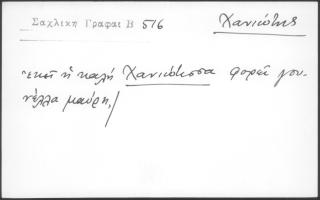 Σαχλικη Γραφαι Β 516
Χανιώτης
Ἐκεῖ ἡ καλή Χανιώτισσα φορεῖ γου-
νέλλα μαύρη,/